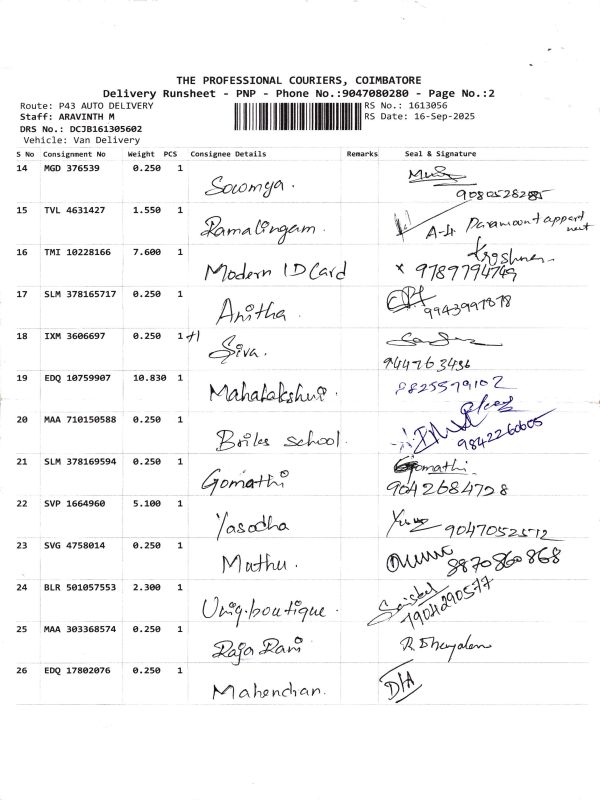 THE PROFESSIONAL COURIERS, COIMBATORE
Delivery Runsheet - PNP - Phone No.:9047080280 - Page No.:2
Route: P43 AUTO DELIVERY RS No.: 1613056
Staff: ARAVINTH M RS Date: 16-Sep-2025
DRS No.: DCJB161305602
Vehicle: Van Delivery
S No Consignment No Weight PCS Consignee Details Remarks Seal & Signature
14 MGD 376539 0.250 1 Sowmya. 9080528285
15 TVL 4631427 1.550 1 Ramalingam. A-4 Paramount appartment
16 TMI 10228166 7.600 1 Modern ID Card x 9789794749
17 SLM 378165717 0.250 1 Anitha. 9943997878
18 IXM 3606697 0.250 1+1 Siva. 944763436
19 EDQ 10759907 10.830 1 Mahalakshmi. 8825579102
20 MAA 710150588 0.250 1 Briles school. 9842260605
21 SLM 378169594 0.250 1 Gomathi Gomathi
9042684728
22 SVP 1664960 5.100 1 Yasodha 9047052572
23 SVG 4758014 0.250 1 Muthu. 8870860868
24 BLR 501057553 2.300 1 Uniq.boutique. 7904290577
25 MAA 303368574 0.250 1 Raja Rani
26 EDQ 17802076 0.250 1 Mahenchan.